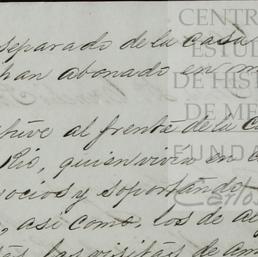 separado de la casa
han abonado en
al frente de la
Rio, quien vivia en
socios y soportando
, asi como los de
las visitas de
CENTR
ESTU
DE
HIS
DE ME
FUND
Carlos